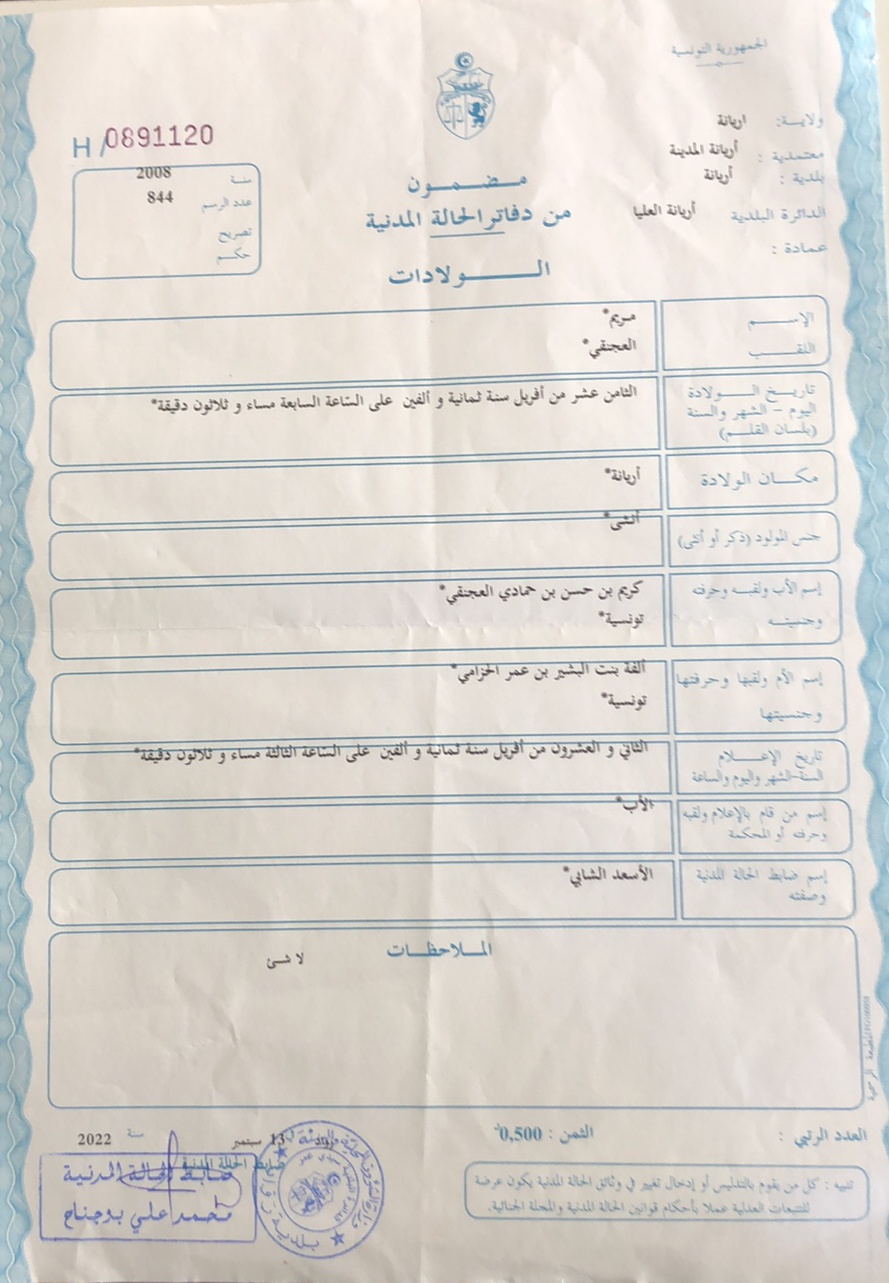 الجمهورية التونسية
ولاية: اريانة
معتمدية : أريانة المدينة
بلدية : أريانة
الدائرة البلدية أريانة العليا
عمادة :
H /0891120
سنة 2008
عدد الرسم 844
تصريح
حكم
مضمون
من دفاتر الحالة المدنية
الولادات
الإسم مريم*
اللقب العجنقي*
تاريخ الولادة
اليوم - الشهر والسنة
(بلسان القلم)
الثامن عشر من أفريل سنة ثمانية و ألفين على السّاعة السابعة مساء و ثلاثون دقيقة*
مكان الولادة أريانة*
جنس المولود (ذكر أو أنثى) أنثى*
إسم الأب ولقبه وحرفته كريم بن حسن بن حمادي العجنقي*
وجنسيته تونسية*
إسم الأم ولقبها وحرفتها ألفة بنت البشير بن عمر الخزامي*
وجنسيتها تونسية*
تاريخ الإعلام
السنة-الشهر واليوم والساعة
الثاني و العشرون من أفريل سنة ثمانية و ألفين على السّاعة الثالثة مساء و ثلاثون دقيقة*
إسم من قام بالإعلام ولقبه
وحرفته أو المحكمة
الأب*
إسم ضابط الحالة المدنية
وصفته
الأسعد الشابي*
الملاحظات
لا شئ
العدد الرتبي :
الثمن : 0,500
13 سبتمبر سنة 2022
ضابط الحالة المدنية
ضابط الحالة المدنية
محمد علي بوجناح
تنبيه : كل من يقوم بالتدليس أو إدخال تغيير في وثائق الحالة المدنية يكون عرضة
للتتبعات العدلية عملا بأحكام قوانين الحالة المدنية والمجلة الجنائية.
المطبعة الرسمية